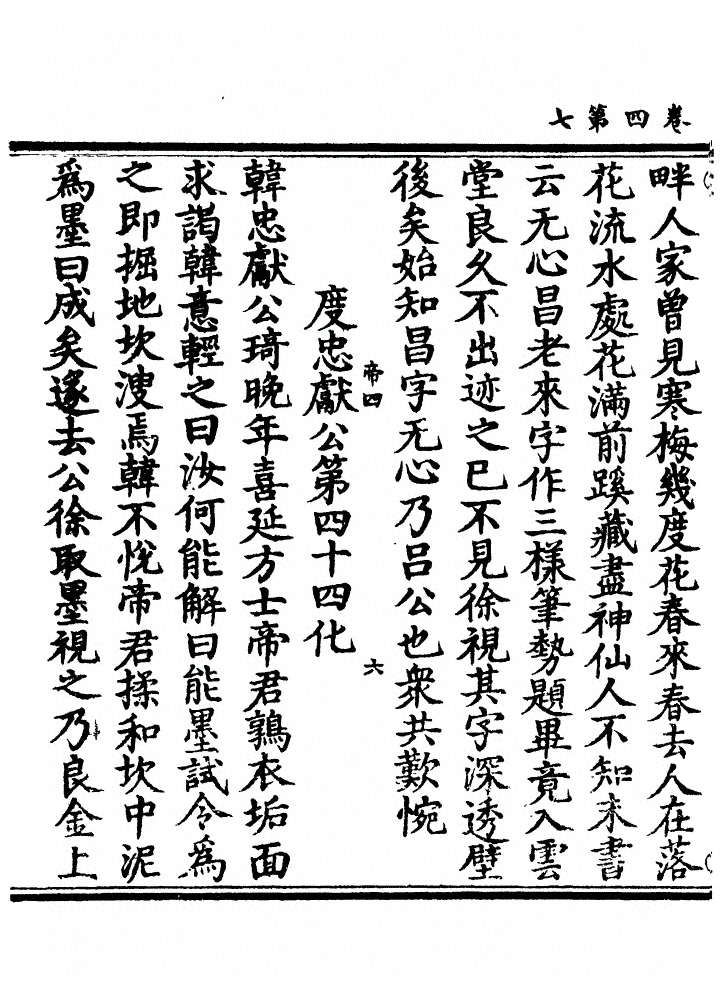 卷四第七
畔人家曾見寒梅幾度花春來春去人在落
花流水處花滿前蹊藏盡神仙人不知末書
云无心昌老來字作三樣筆勢題畢竟入雲
堂良久不出迹之已不見徐視其字深透壁
後矣始知昌字无心乃吕公也衆共歎惋
度忠獻公第四十四化
帝四
六
韓忠獻公琦晚年喜延方士帝君鶉衣垢面
求謁韓意輕之曰汝何能解曰能墨試令爲
之即掘地坎溲焉韓不悅帝君揉和坎中泥
爲墨曰成矣遂去公徐取墨視之乃良金上